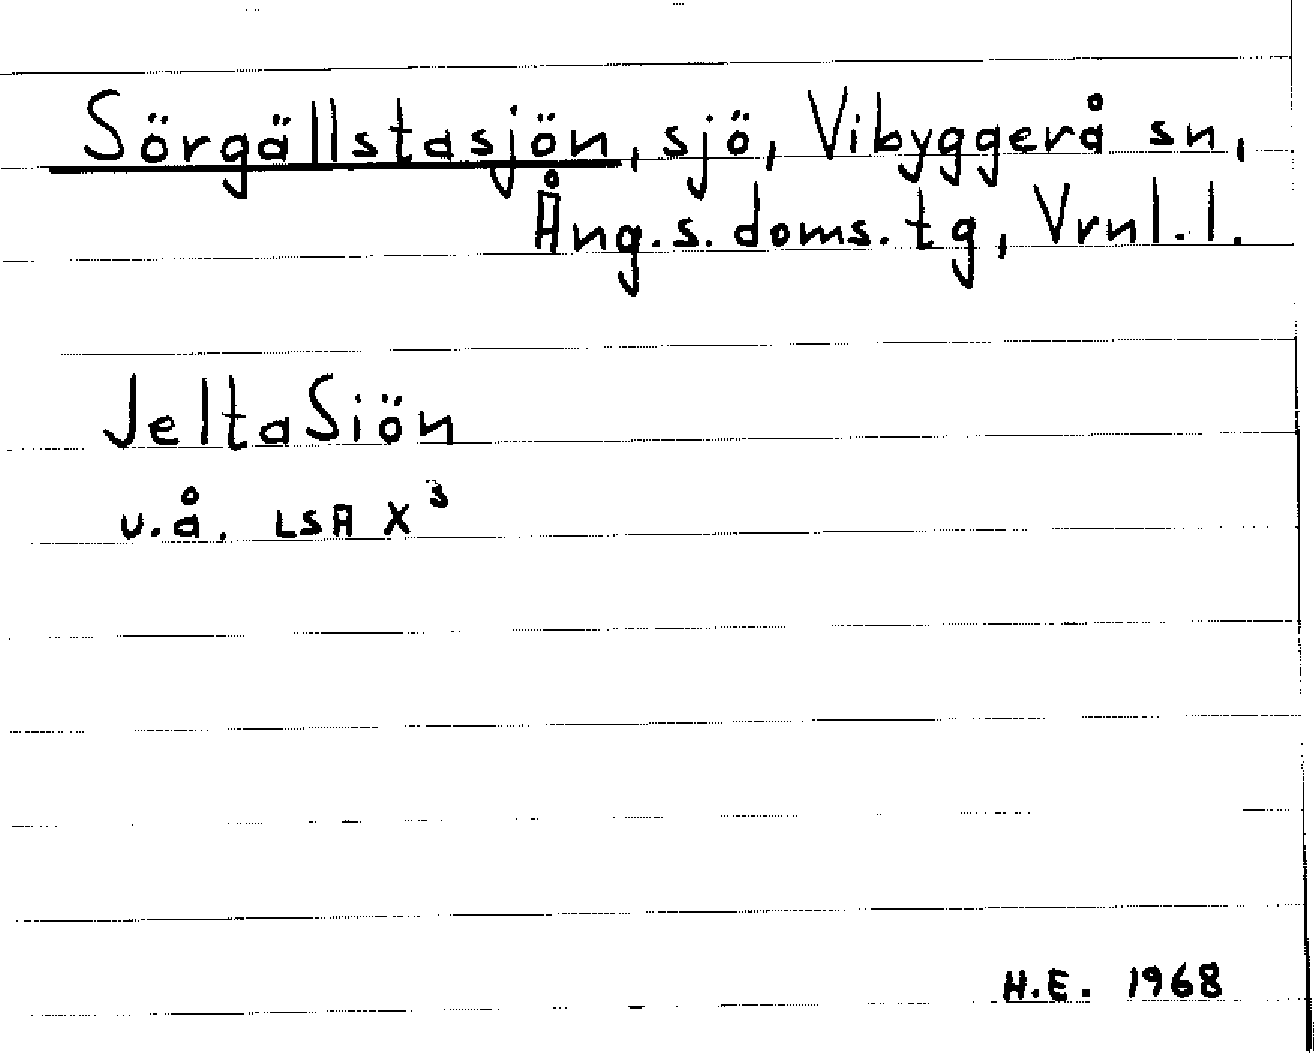 Sörgällstasjön, sjö, Vibyggerå sn,
Ång.s. doms. tg, Vrnl.l.
JeltaSiön
u.å. LSA X³
H.E. 1968